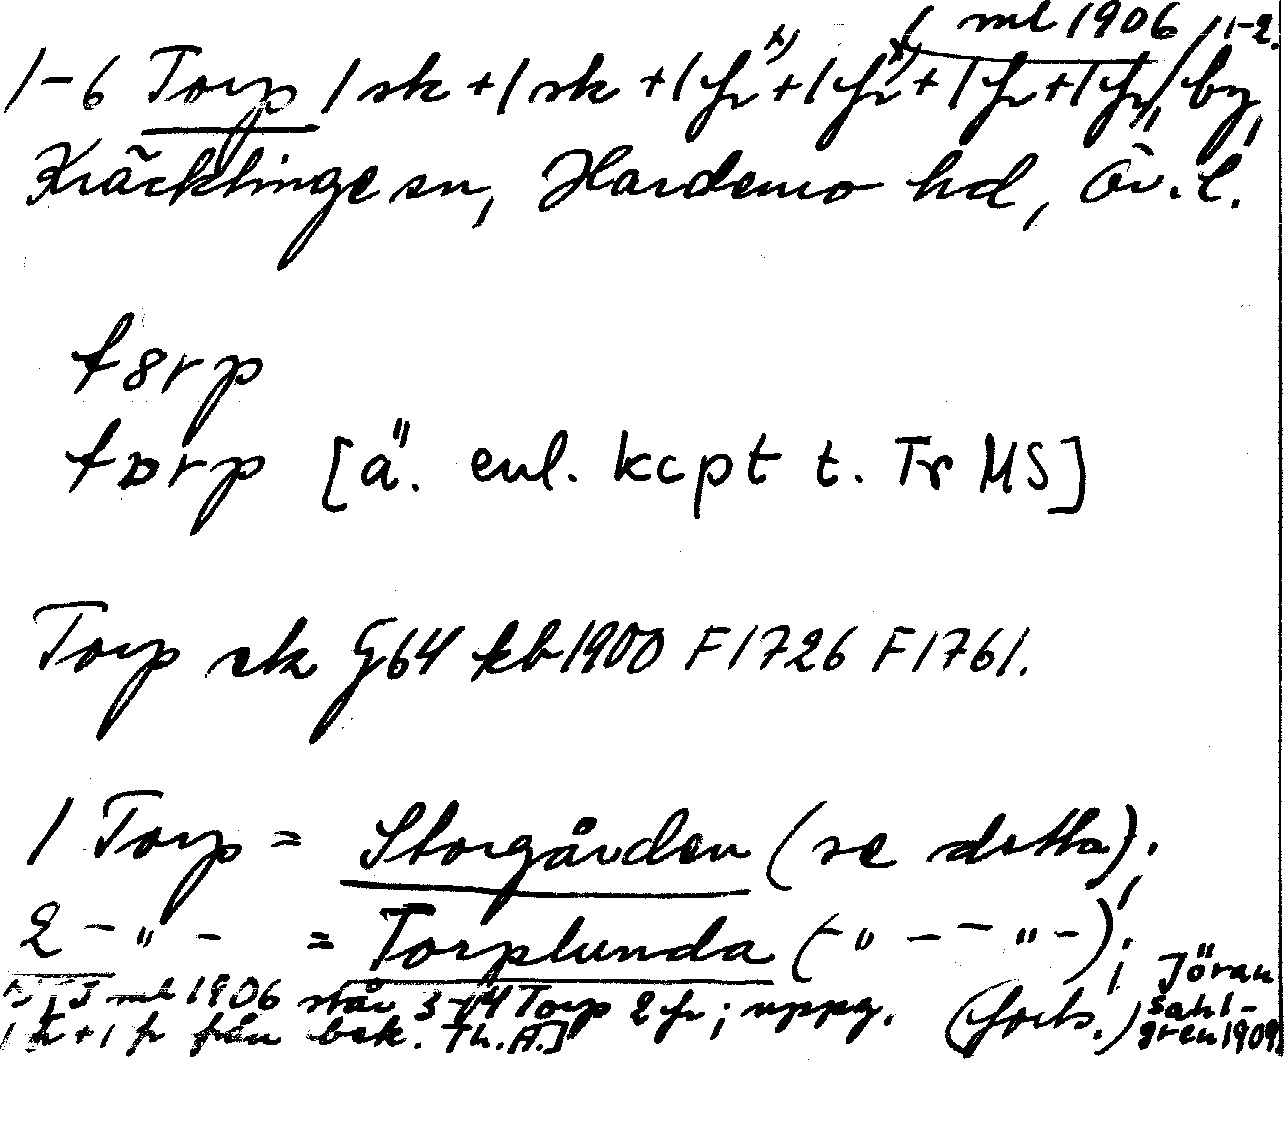 ( ml 1906 / 1-2.
1-6 Torp 1 sk + 1 sk + 1 fr x) + 1 fr x) + 1 fr + 1 fr, by,
Kräcklinge sn, Hardemo hd, Ör. l.
tɔrp
tɒrp [ä. enl. kcpt t. Tr MS]
Torp sk G64 kb1900 F1726 F1761.
1 Torp = Storgården (se detta);
2 - " - = Torplunda (- " - - " -);
I ml 1906 står 3-4 Torp 2 fr; uppg.
1 fr + 1 fr från bok. Th. A.]
(forts.)
Jöran
Sahl-
gren 1909]